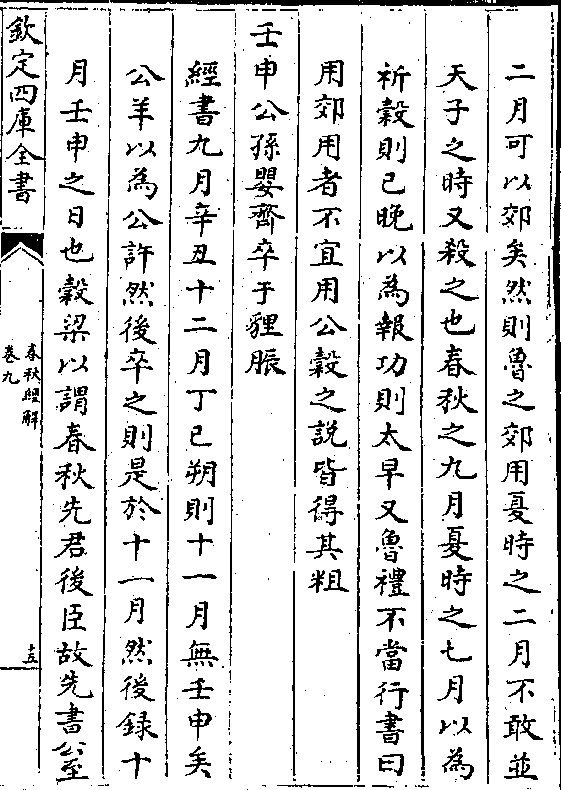 二月可以郊矣然則魯之郊用夏時之二月不敢並
天子之時又殺之也春秋之九月夏時之七月以為
祈穀則已晚以為報功則太早又魯禮不當行書曰
用郊用者不宜用公穀之説皆得其粗
壬申公孫嬰齊卒于貍脤
經書九月辛丑十二月丁巳朔則十一月無壬申矣
公羊以為公許然後卒之則是於十一月然後録十
月壬申之日也穀梁以謂春秋先君後臣故先書公至
欽定四庫全書
春秋經解
卷九
十五